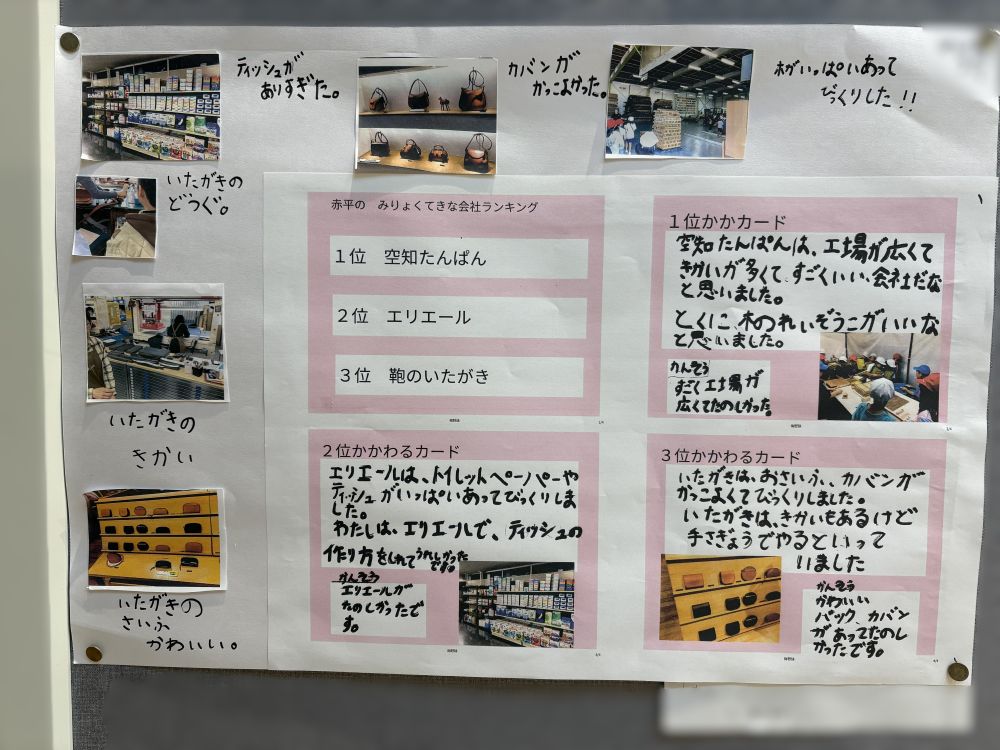 ティッシュが
ありすぎた。
カバンが
かっこよかった。
木がいっぱいあって
びっくりした!!
いたがきの
どうぐ。
いたがきの
きかい
いたがきの
さいふ
かわいい。
赤平の みりょくてきな会社ランキング
1位 空知たんぱん
2位 エリエール
3位 鞄のいたがき
1位かかカード
空知たんぱんは、工場が広くて
きかいが多くて、すごくいい会社だな
と思いました。
とくに、木のれいぞうこがいいな
と思いました。
かんそう
すごく工場が
広くてたのしかった。
2位かかわるカード
エリエールは、トイレットペーパーや
ティッシュがいっぱいあってびっくりしま
した。
わたしは、エリエールで、ティッシュの
作り方をしれてうれしかった
です。
かんそう
エリエールが
たのしかったで
す。
3位かかわるカード
いたがきは、おさいふ、カバンが
かっこよくてびっくりしました。
いたがきは、きかいもあるけど
手さぎょうでやるといって
いました
かんそう
かわいい
バック、カバン
があってたのし
かったです。